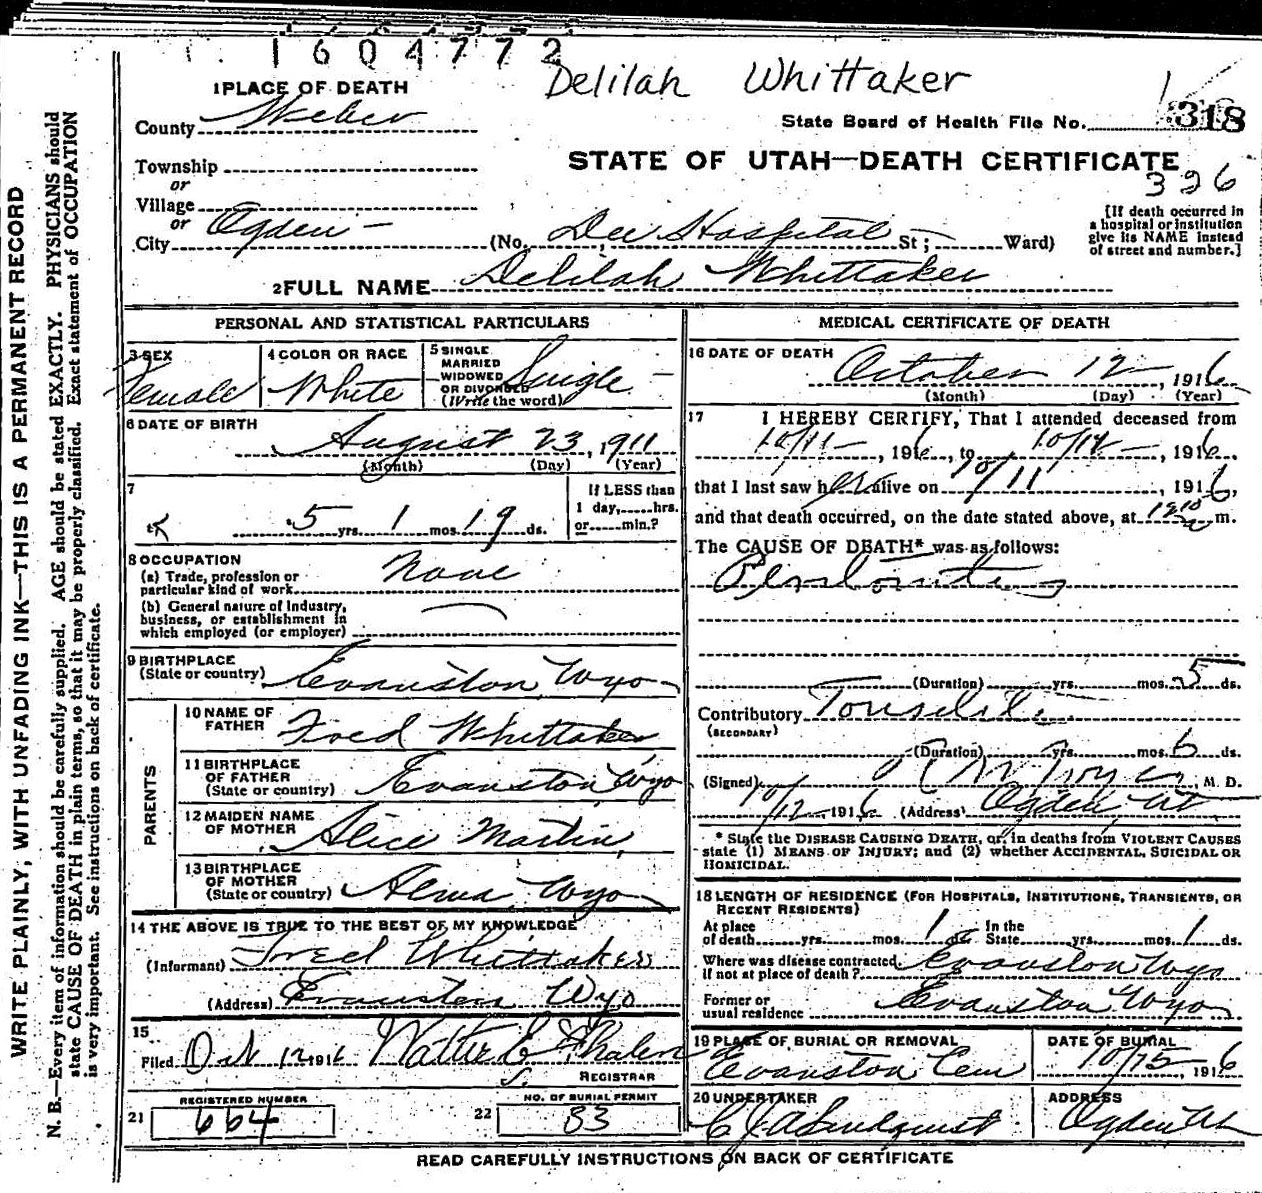 1604772
Delilah Whittaker
1 PLACE OF DEATH
County Weber
State Board of Health File No. 318
Township
STATE OF UTAH—DEATH CERTIFICATE
326
or
Village
or
City Ogden (No. Dee Hospital St; Ward)
[If death occurred in
a hospital or institution
give its NAME instead
of street and number.]
2 FULL NAME Delilah Whittaker
PERSONAL AND STATISTICAL PARTICULARS
3 SEX
Female
4 COLOR OR RACE
White
5 SINGLE
MARRIED
WIDOWED
OR DIVORCED
(Write the word)
Single
6 DATE OF BIRTH
August 23, 1911
(Month) (Day) (Year)
7
5 yrs. 1 mos. 19 ds.
If LESS than
1 day, hrs.
or min.?
8 OCCUPATION
(a) Trade, profession or
particular kind of work None
(b) General nature of Industry,
business, or establishment in
which employed (or employer)
9 BIRTHPLACE
(State or country) Evanston, Wyo
PARENTS
10 NAME OF
FATHER Fred Whittaker
11 BIRTHPLACE
OF FATHER
(State or country) Evanston Wyo
12 MAIDEN NAME
OF MOTHER Alice Martin
13 BIRTHPLACE
OF MOTHER
(State or country) Wyo
14 THE ABOVE IS TRUE TO THE BEST OF MY KNOWLEDGE
(Informant) Fred Whittaker
(Address) Evanston Wyo
15
Filed Oct 12 1916 Walter E Whalen
REGISTRAR
21
REGISTERED NUMBER
664
22
NO. OF BURIAL PERMIT
83
MEDICAL CERTIFICATE OF DEATH
16 DATE OF DEATH
October 12, 1916
(Month) (Day) (Year)
17 I HEREBY CERTIFY, That I attended deceased from
10/11, 1916, to 10/12, 1916,
that I last saw her alive on 10/11, 1916,
and that death occurred, on the date stated above, at m.
The CAUSE OF DEATH* was as follows:
(Duration) yrs. mos. 5 ds.
Contributory
(SECONDARY)
(Duration) yrs. mos. 6 ds.
(Signed) M. D.
10/12 1916 (Address) Ogden Ut
* State the DISEASE CAUSING DEATH, or, in deaths from VIOLENT CAUSES
state (1) MEANS OF INJURY; and (2) whether ACCIDENTAL, SUICIDAL OR
HOMICIDAL.
18 LENGTH OF RESIDENCE (FOR HOSPITALS, INSTITUTIONS, TRANSIENTS, OR
RECENT RESIDENTS)
At place
of death yrs. mos. 1 ds.
In the
State yrs. mos. 1 ds.
Where was disease contracted
if not at place of death? Evanston Wyo
Former or
usual residence Evanston Wyo
19 PLACE OF BURIAL OR REMOVAL
Evanston Cem
DATE OF BURIAL
10/15, 1916
20 UNDERTAKER
Lindquist
ADDRESS
Ogden Ut
READ CAREFULLY INSTRUCTIONS ON BACK OF CERTIFICATE
WRITE PLAINLY, WITH UNFADING INK—THIS IS A PERMANENT RECORD
N. B.—Every item of information should be carefully supplied. AGE should be stated EXACTLY. PHYSICIANS should
state CAUSE OF DEATH in plain terms, so that it may be properly classified. Exact statement of OCCUPATION
is very important. See instructions on back of certificate.